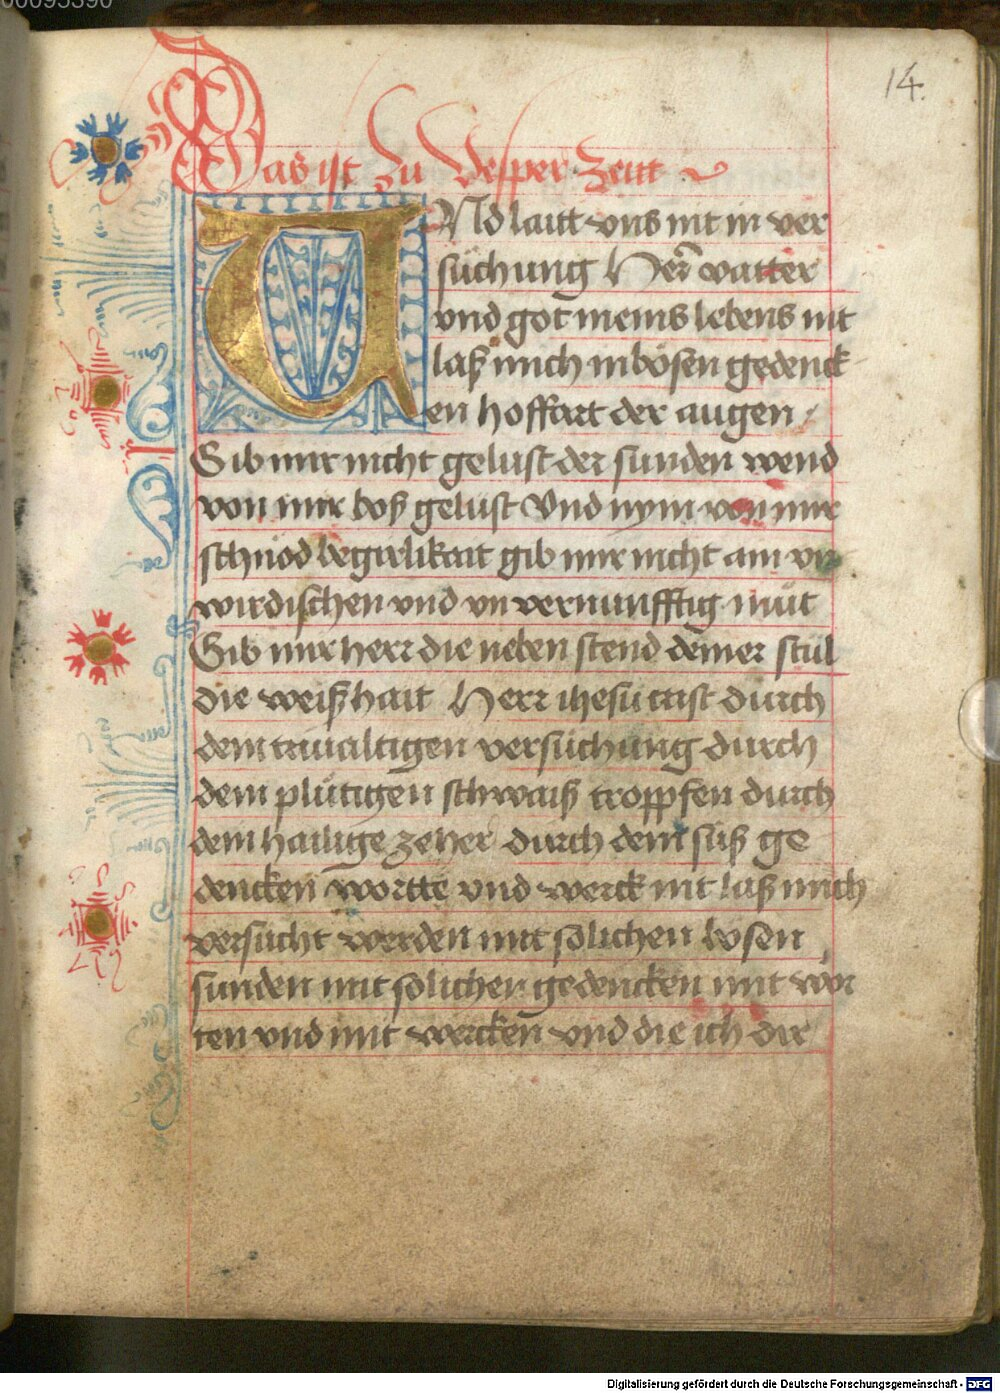 00095390
14.
Das ist zu Vesper zeitt
UNd laitt vns nit in ver
sůchung Her̄ vatter
vnd got meins lebens nit
laß mich in bösen gedenck
en hoffart der augen
Gib mir nicht gelust der sunden wend
von mir boß gelust Vnd nym von mir
schnöd begirlikait gib mir nicht ain vn
wirdischen vnd vn vernunfftig můt
Gib mir herr die neben stend deiner stůl
die weißhait Herr ihesu crist durch
dein triualtigen versůchung durch
dein plůtigen schwaiß tropfen durch
dein hailige zeher durch dein süß ge
dencken wortte vnd werck nit laß mich
versůcht werden mit sölichen bosen
sunden mit sölichen gedencken mit wor
ten vnd mit wercken vnd die ich dir
Digitalisierung gefördert durch die Deutsche Forschungsgemeinschaft - DFG